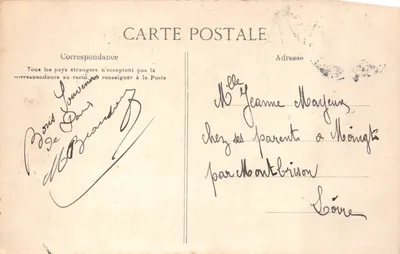 CARTE POSTALE
Correspondance
Tous les pays étrangers n'acceptent pas la
correspondance au recto, se renseigner à la Poste
Bons Souvenirs
de Paris
Adresse
Mlle Jeanne Mayeux
chez ses parents à Moingt
par Montbrison
Loire